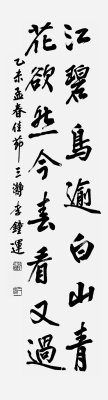 江碧鳥逾白山青
花欲然今春看又過
乙未孟春佳節三瀞李鐘運